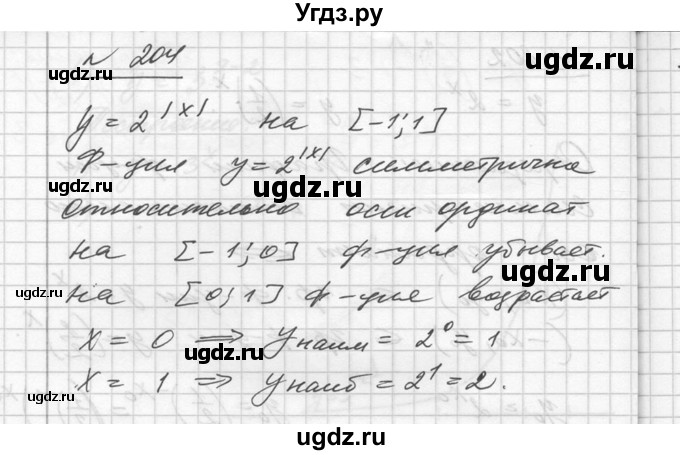 Угдз.ру
N 204
ugdz.ru ugdz.ru
y = 2^|x| на [-1; 1]
ugdz.ru
ф-ция y = 2^|x| симметрична
ugdz.ru ugdz.ru
относительно оси ординат
на [-1; 0] ф-ция убывает.
ugdz.ru ugdz.ru
на [0; 1] ф-ция возрастает
ugdz.ru
x = 0 ⇒ y наим = 2^0 = 1
ugdz.ru
x = 1 ⇒ y наиб = 2^1 = 2.
ugdz.ru ugdz.ru
ugdz.ru